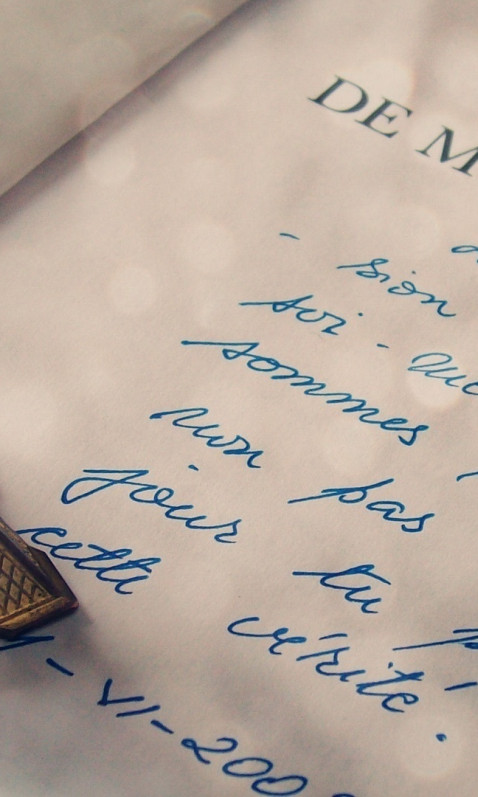 DE M
- sion
soi-
sommes
non pas
jour tu
cette vérité.
-VI-200